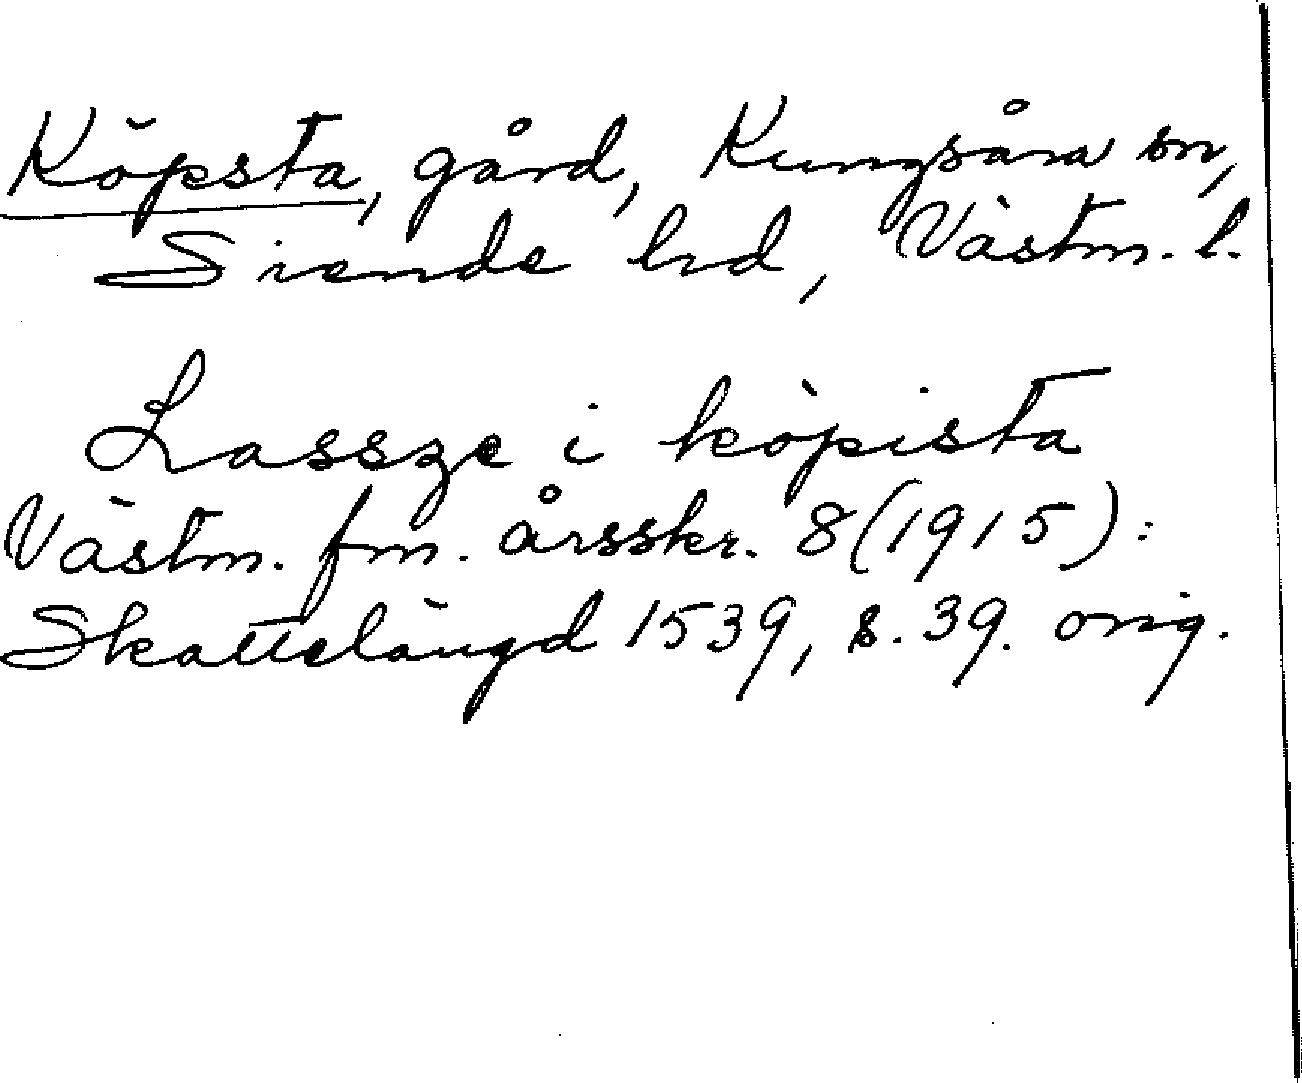 Köpsta, gård, Kungsåra sn,
Siende hd, Västm. l.
Lassze i köpista
Västm. fm. årsskr. 8 (1915):
Skattelängd 1539, s. 39. orig.